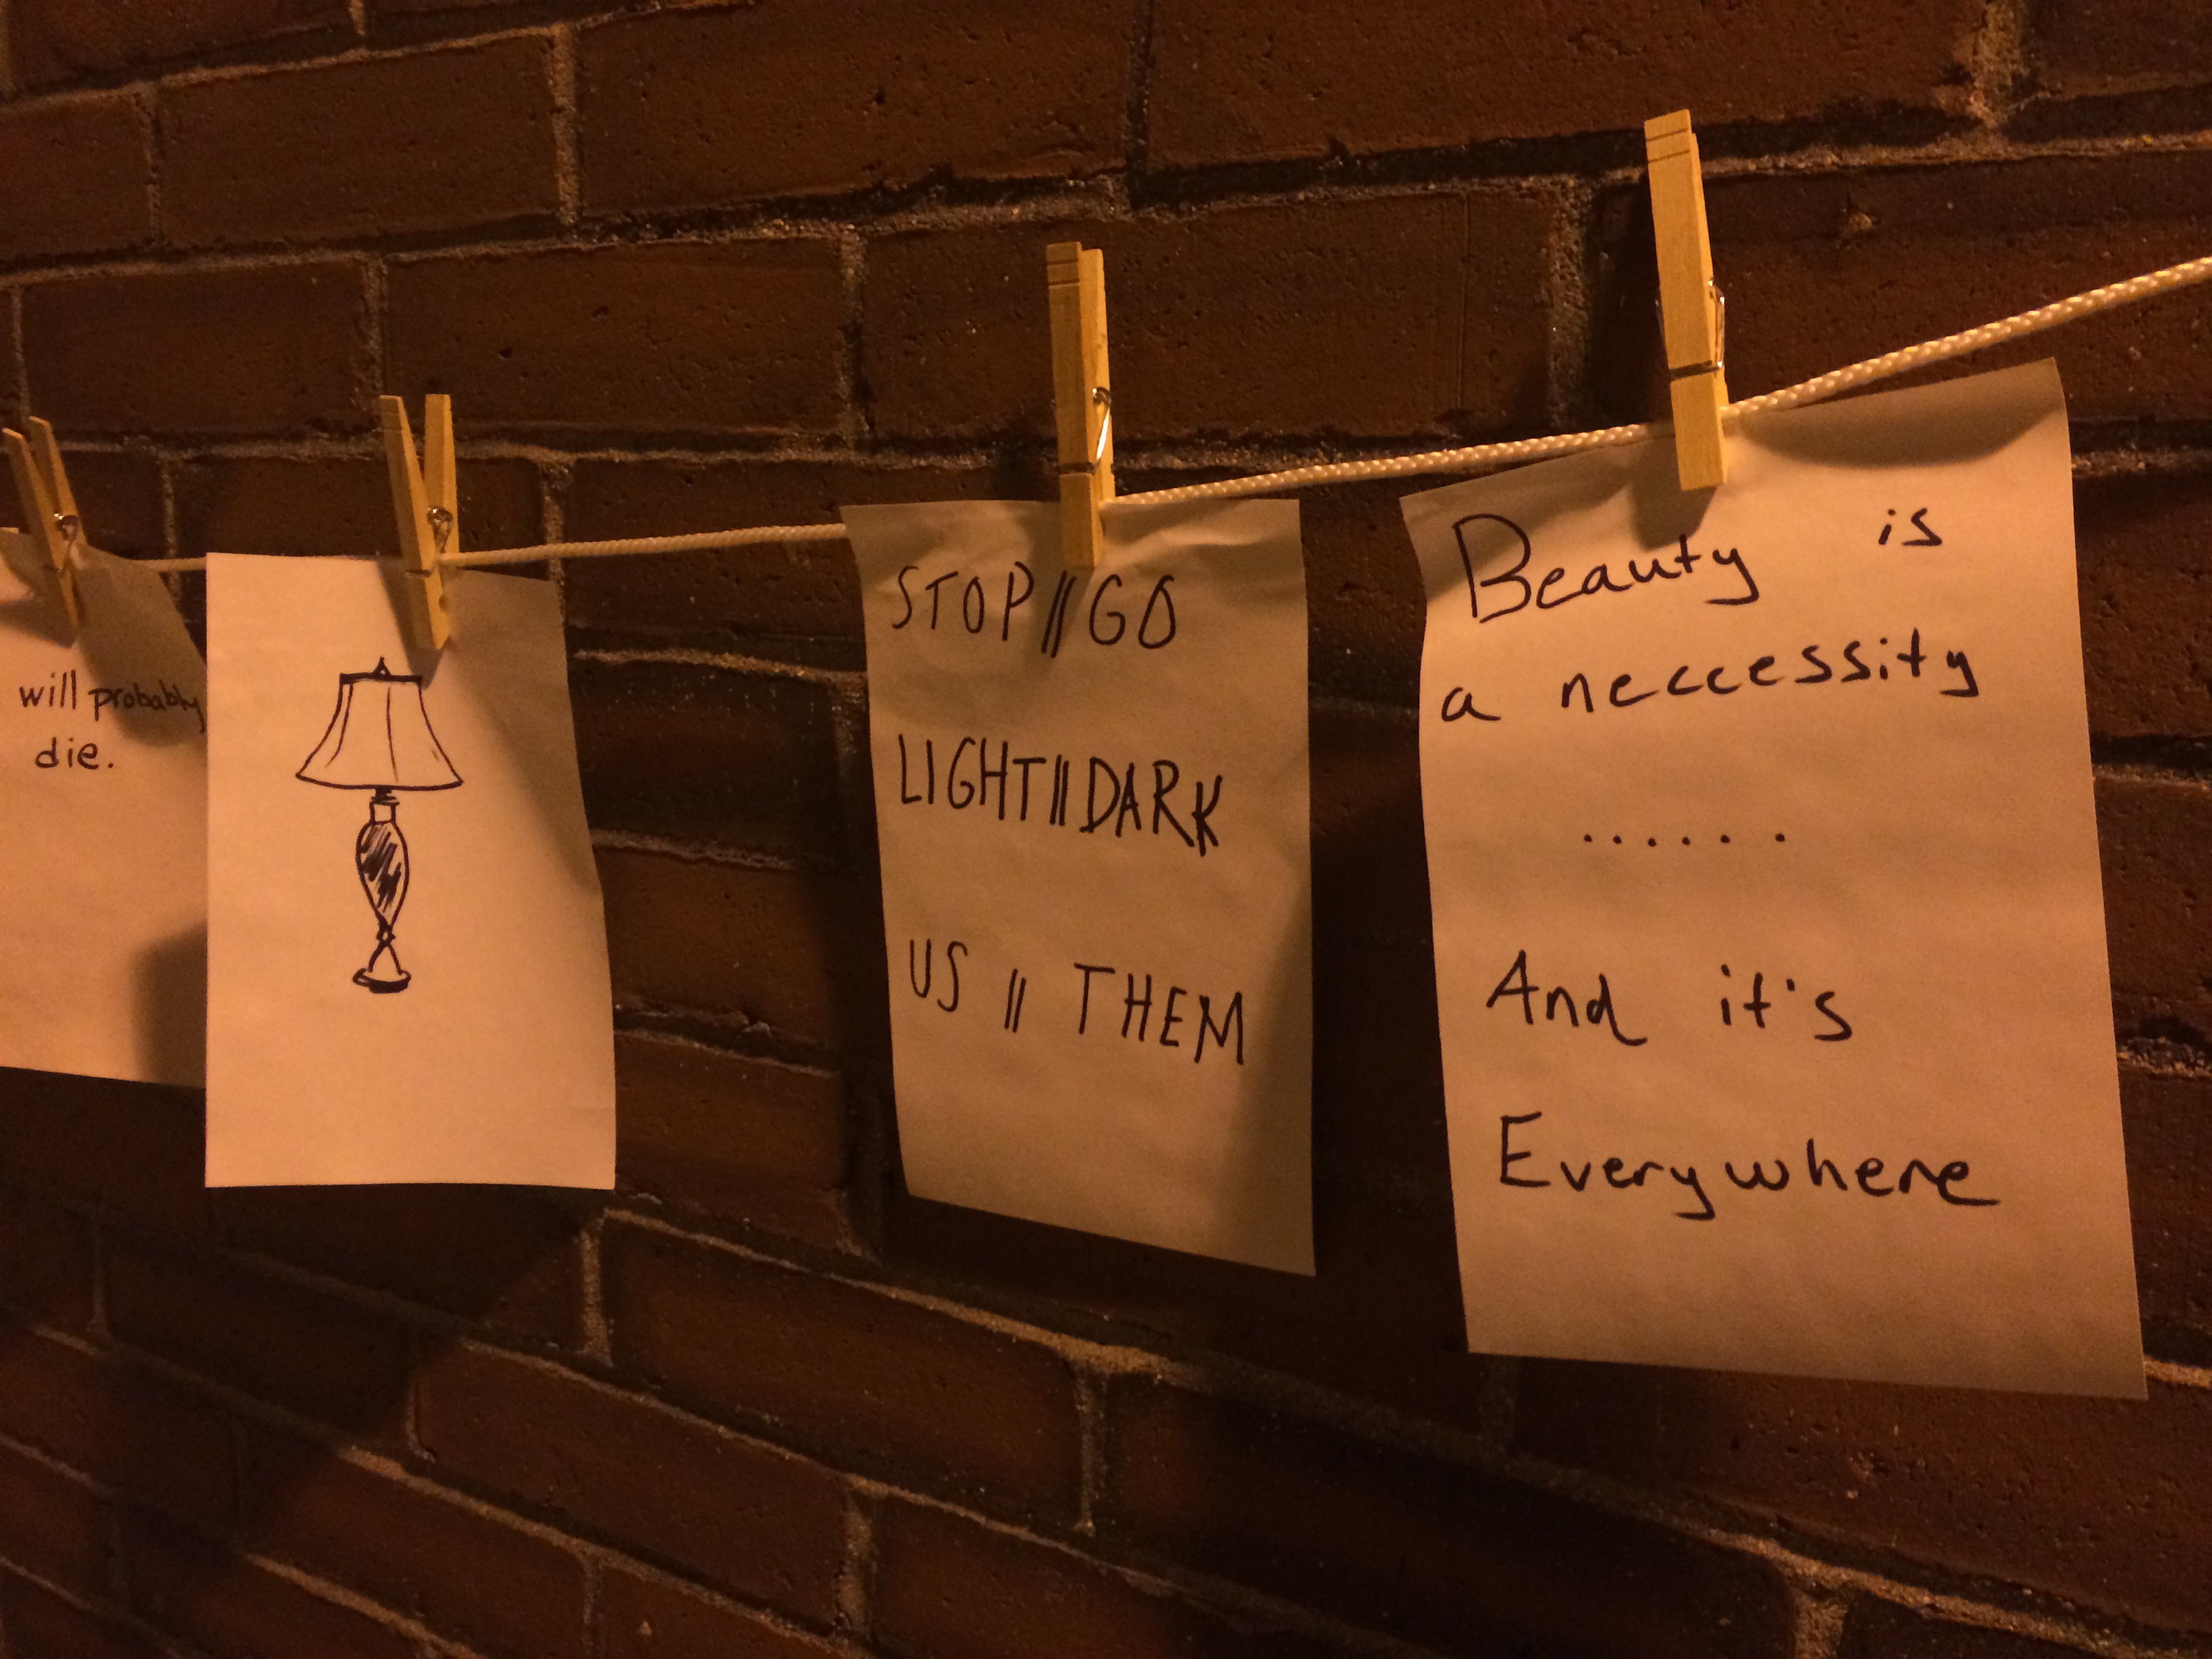 will probably
die.
STOP//GO
LIGHT//DARK
US // THEM
Beauty is
a neccessity
......
And it's
Everywhere